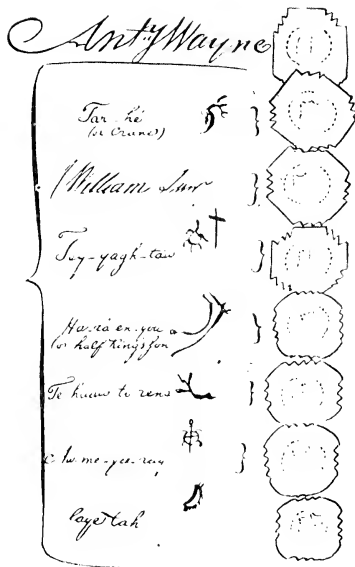 Anty Wayne
Tar hé
(or Crane)
William
Tey-yagh-taw
Ha-ra-en-you
(or half Kings son
Te haaw to rens
me-yee-ray
laye tah